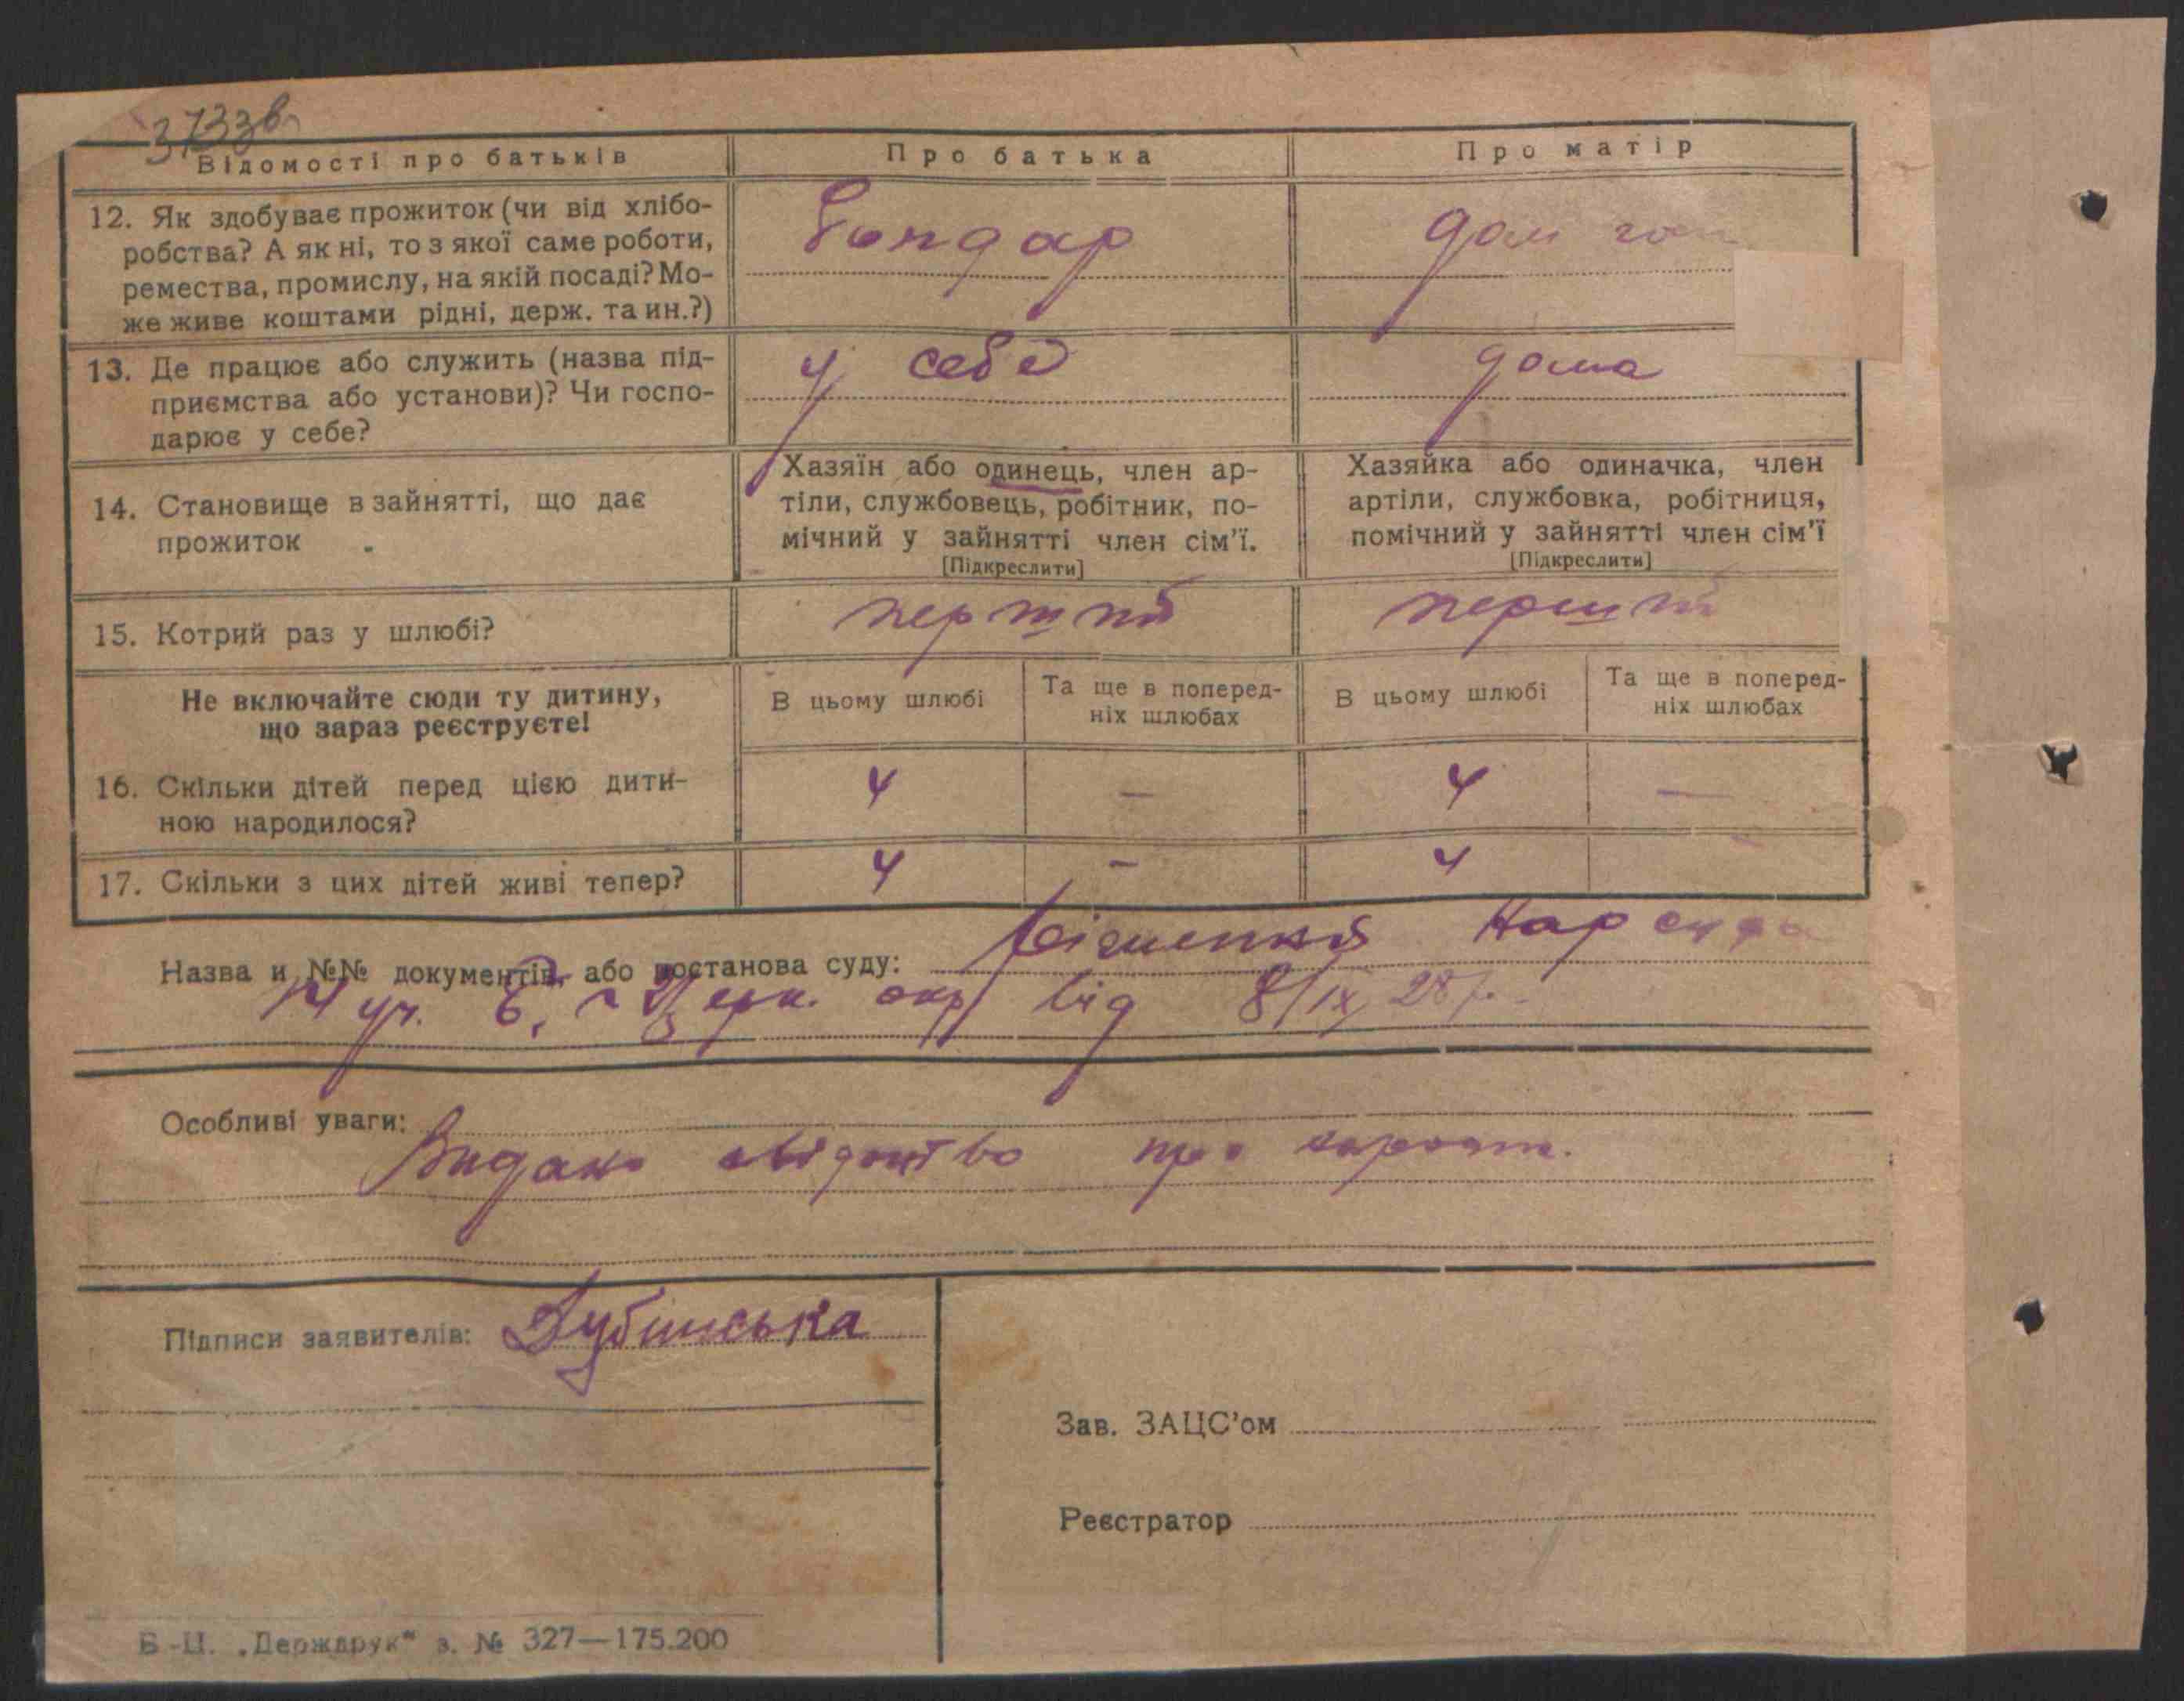 3733в
Відомості про батьків
Про батька
Про матір
12. Як здобуває прожиток (чи від хлібо-
робства? А як ні, то з якої саме роботи,
ремества, промислу, на якій посаді? Мо-
же живе коштами рідні, держ. та ин.?)
Бондар
дом
13. Де працює або служить (назва під-
приємства або установи)? Чи госпо-
дарює у себе?
у себе
дома
14. Становище в зайнятті, що дає
прожиток
Хазяїн або одинець, член ар-
тіли, службовець, робітник, по-
мічний у зайнятті член сім'ї.
[Підкреслити]
Хазяйка або одиначка, член
артіли, службовка, робітниця,
помічний у зайнятті член сім'ї
[Підкреслити]
15. Котрий раз у шлюбі?
перший
перший
Не включайте сюди ту дитину,
що зараз реєструєте!
В цьому шлюбі
Та ще в поперед-
ніх шлюбах
В цьому шлюбі
Та ще в поперед-
ніх шлюбах
16. Скільки дітей перед цією дити-
ною народилося?
4 — 4 —
17. Скільки з цих дітей живі тепер?
4 — 4 —
Назва й №№ документів або постанова суду: Рішення Нарсуда
уч. окр від 8/IX 28 р.
Особливі уваги:
Видано свідоцтво про народж.
Підписи заявителів: Дубінська
Зав. ЗАЦС'ом
Реєстратор
Б.-Ц. „Держдрук“ з. № 327—175.200